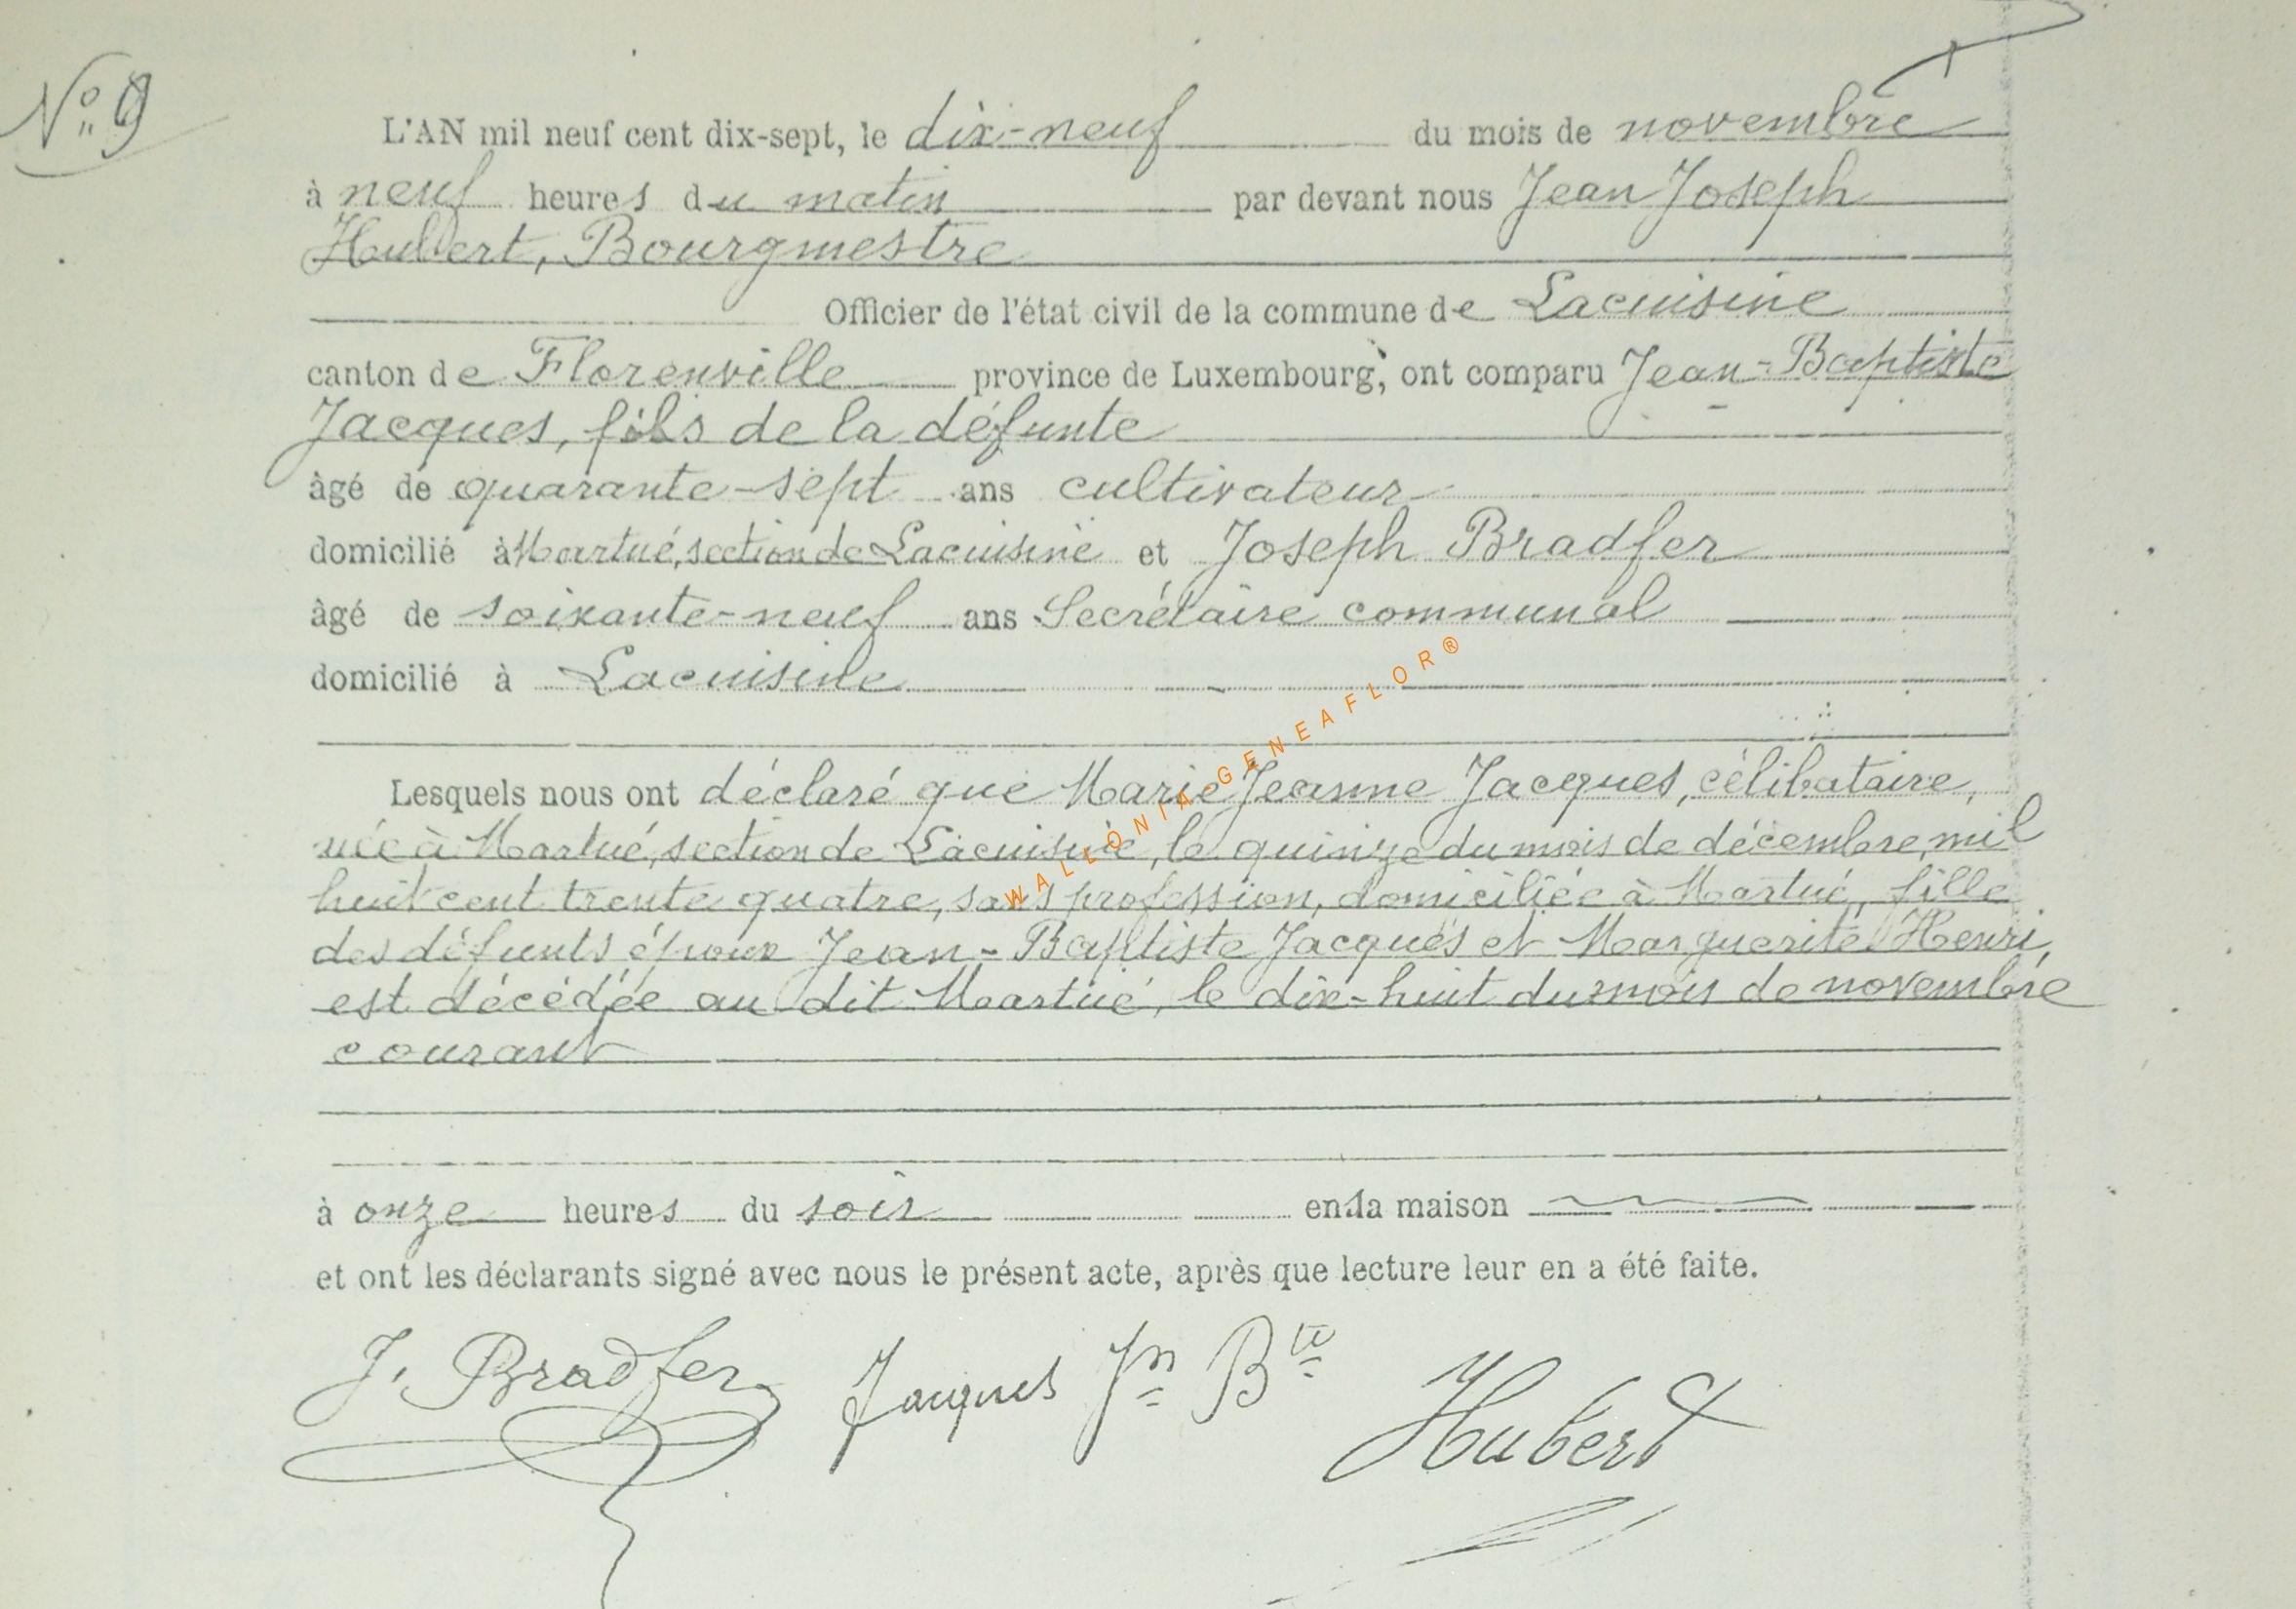 N° 9
L'AN mil neuf cent dix-sept, le dix-neuf du mois de novembre
à neuf heures du matin par devant nous Jean Joseph
Hubert, Bourgmestre
Officier de l'état civil de la commune de Lacuisine
canton de Florenville province de Luxembourg, ont comparu Jean-Baptiste
Jacques, fils de la défunte
âgé de quarante-sept ans cultivateur
domicilié à Martué, section de Lacuisine et Joseph Bradfer
âgé de soixante-neuf ans Secrétaire communal
domicilié à Lacuisine
Lesquels nous ont déclaré que Marie Jeanne Jacques, célibataire,
née à Martué, section de Lacuisine, le quinze du mois de décembre mil
huit cent trente quatre, sans profession, domiciliée à Martué, fille
des défunts époux Jean-Baptiste Jacques et Marguerite Henri,
est décédée au dit Martué, le dix-huit du mois de novembre
courant
à onze heures du soir en la maison
et ont les déclarants signé avec nous le présent acte, après que lecture leur en a été faite.
J. Bradfer Jacques Jn Bte Hubert
WALLONIA GENEAFLOR®